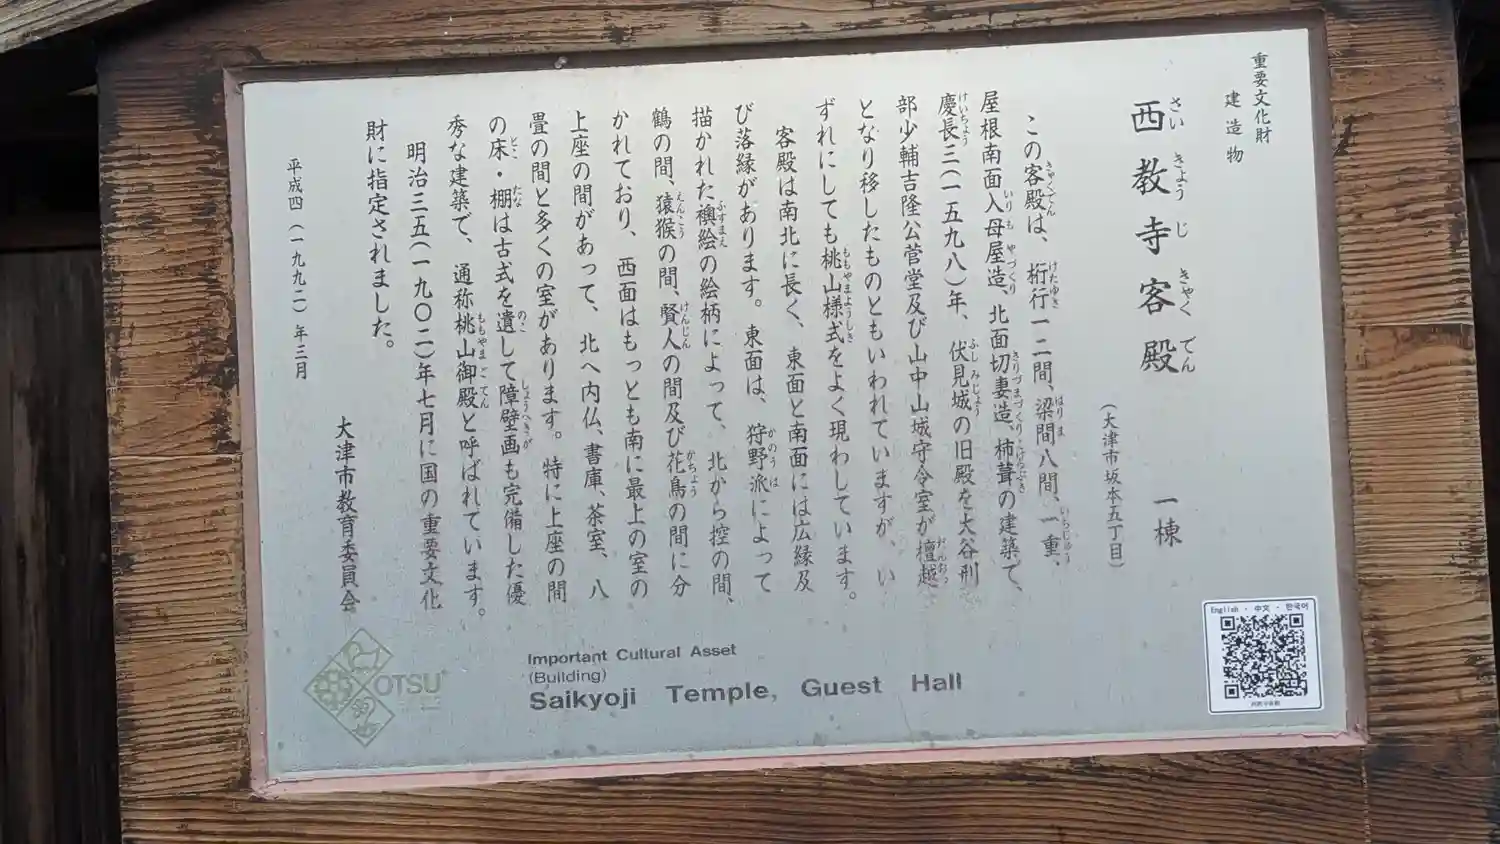 重要文化財
建造物
西教寺客殿 一棟
さいきょうじきゃくでん
(大津市坂本五丁目)
この客殿は、桁行一二間、梁間八間、一重、
屋根南面入母屋造、北面切妻造、杮葺の建築で、
慶長三(一五九八)年、伏見城の旧殿を大谷刑
部少輔吉隆公菅堂及び山中山城守令室が檀越
となり移したものともいわれていますが、い
ずれにしても桃山様式をよく現わしています。
客殿は南北に長く、東面と南面には広縁及
び落縁があります。東面は、狩野派によって
描かれた襖絵の絵柄によって、北から控の間、
鶴の間、猿猴の間、賢人の間及び花鳥の間に分
かれており、西面はもっとも南に最上の室の
上座の間があって、北へ内仏、書庫、茶室、八
畳の間と多くの室があります。特に上座の間
の床・棚は古式を遺して障壁画も完備した優
秀な建築で、通称桃山御殿と呼ばれています。
明治三五(一九〇二)年七月に国の重要文化
財に指定されました。
平成四(一九九二)年三月
大津市教育委員会
OTSU
Important Cultural Asset
(Building)
Saikyoji Temple, Guest Hall
English・中文・한국어